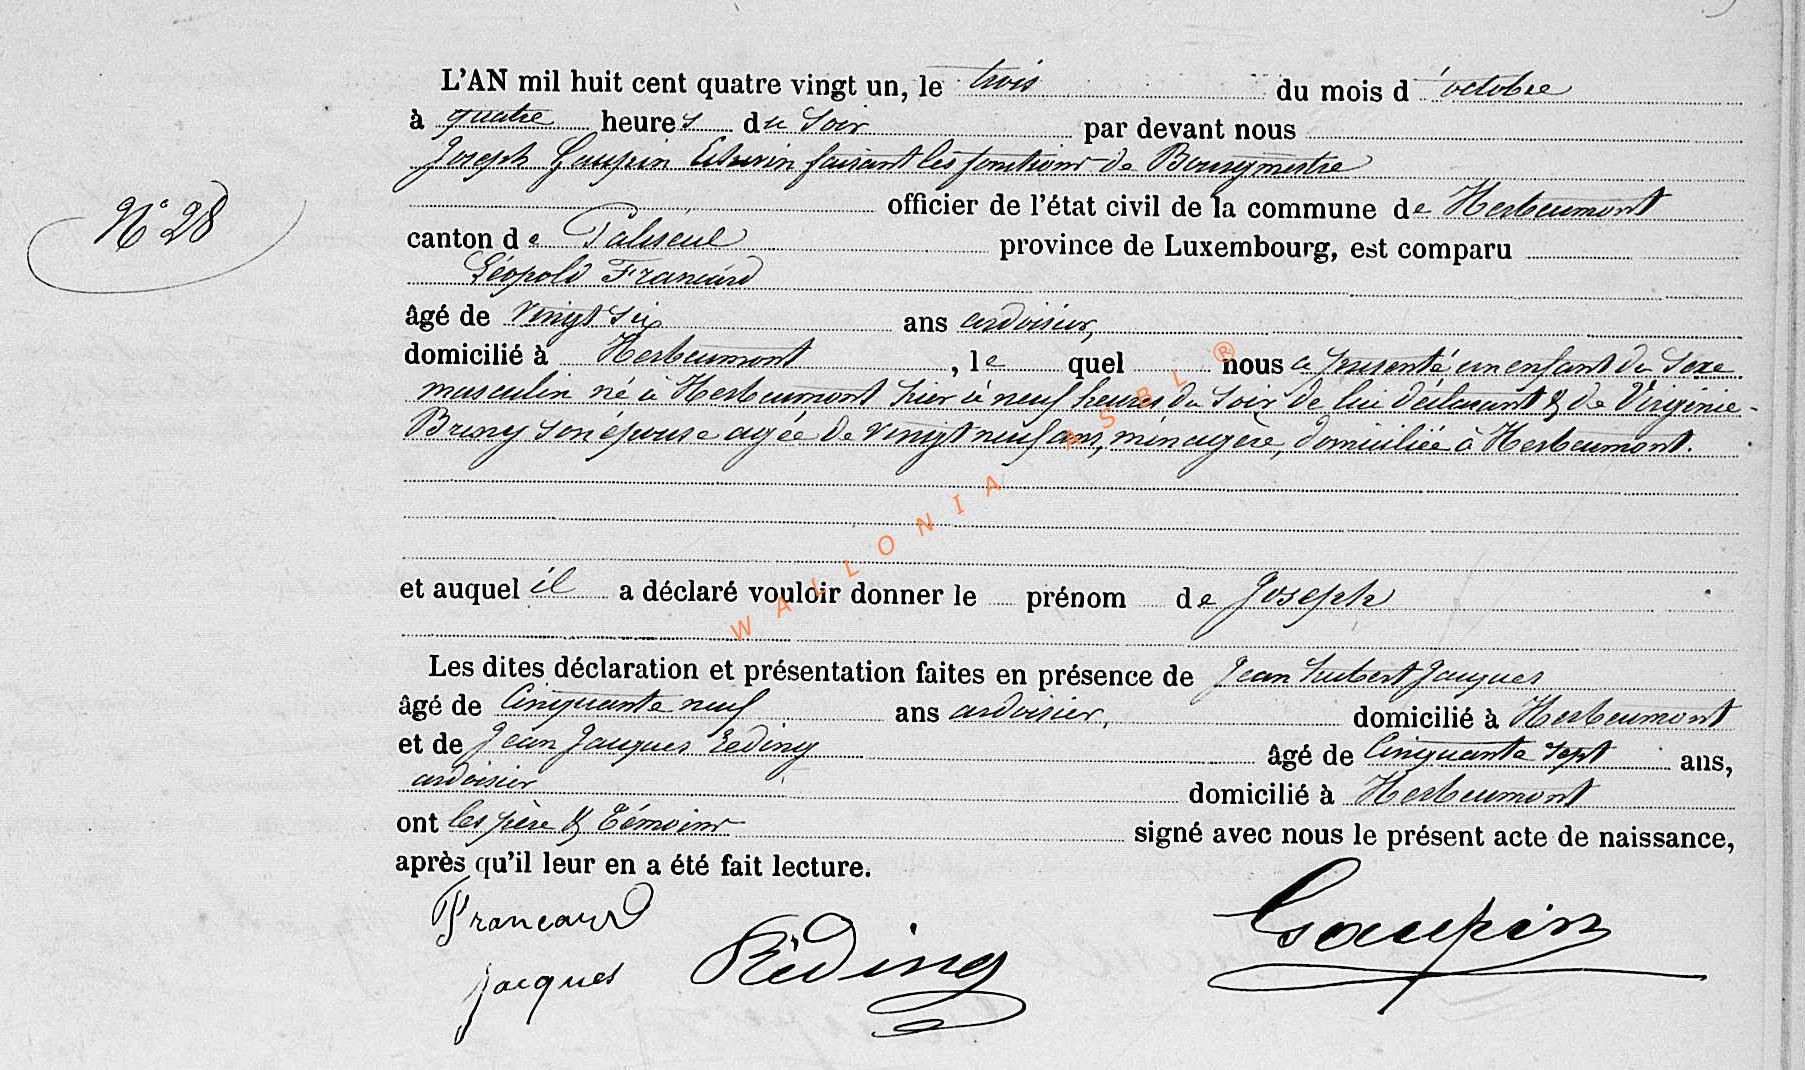 L'AN mil huit cent quatre vingt un, le trois du mois d'octobre
à quatre heures du soir par devant nous
Joseph Gaupin Echevin faisant les fonctions de Bourgmestre
officier de l'état civil de la commune de Herbeumont
N° 28
canton de Paliseul province de Luxembourg, est comparu
Léopold Francard
âgé de vingt six ans ardoisier,
domicilié à Herbeumont, le quel nous a présenté un enfant du sexe
masculin né à Herbeumont hier à neuf heures du soir de lui déclarant & de Virginie
Bruny son épouse agée de vingt neuf ans, ménagère, domiciliée à Herbeumont.
et auquel il a déclaré vouloir donner le prénom de Joseph
Les dites déclaration et présentation faites en présence de Jean hubert Jacques
âgé de Cinquante neuf ans ardoisier, domicilié à Herbeumont
et de Jean Jacques Reding âgé de Cinquante sept ans,
ardoisier domicilié à Herbeumont
ont les père & témoins signé avec nous le présent acte de naissance,
après qu'il leur en a été fait lecture.
Francard
Gaupin
Jacques
Réding
WALLONIA ASBL ®